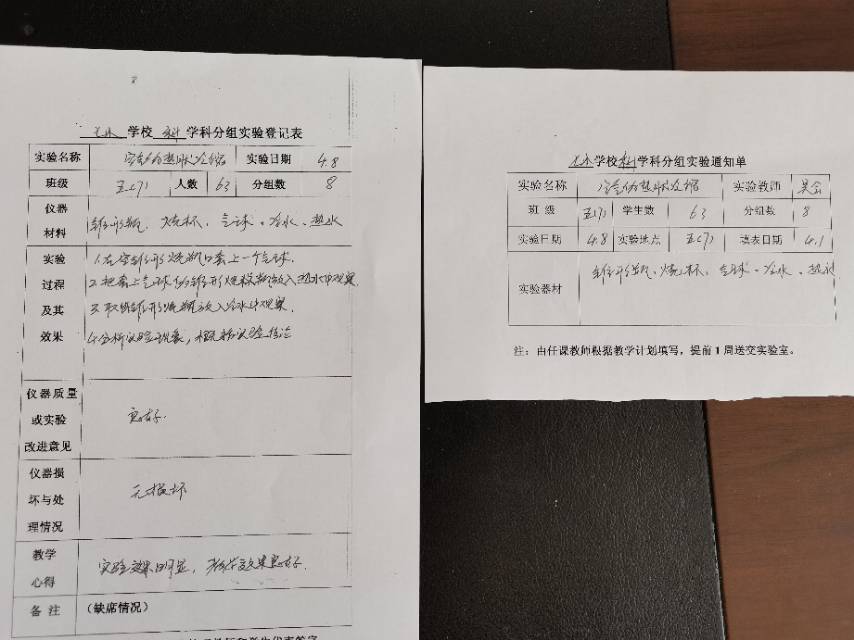 学校 科 学科分组实验登记表
实验名称 空气的热胀冷缩 实验日期 4.8
班级 五(7) 人数 63 分组数 8
仪器材料 锥形瓶、烧杯、气球、冷水、热水
实验过程及其效果
1.在空锥形烧瓶口套上一个气球.
2.把套上气球的锥形烧瓶放入热水中观察.
3.取锥形烧瓶放入冷水中观察.
4.分析实验现象，实验结论
仪器质量或实验改进意见 良好.
仪器损坏与处理情况 无损坏
教学心得 实验效果明显，教学效果良好.
备注 （缺席情况）
学校科学科分组实验通知单
实验名称 空气的热胀冷缩 实验教师
班级 五(7) 学生数 63 分组数 8
实验日期 4.8 实验地点 五(7) 填表日期 4.1
实验器材 锥形瓶、烧杯、气球、冷水、热水
注：由任课教师根据教学计划填写，提前1周送交实验室。